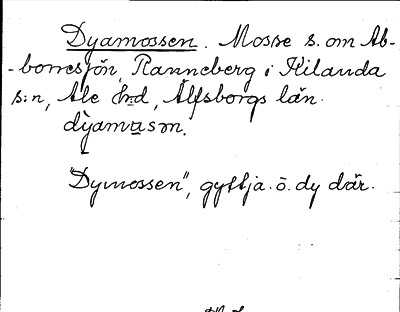 Dyamossen. Mosse s. om Ab-
-borresjön, Ranneberg i Kilanda
s:n, Ale hrd, Älfsborgs län.
dyamåsm.
"Dymossen", gyttja o. dy där.